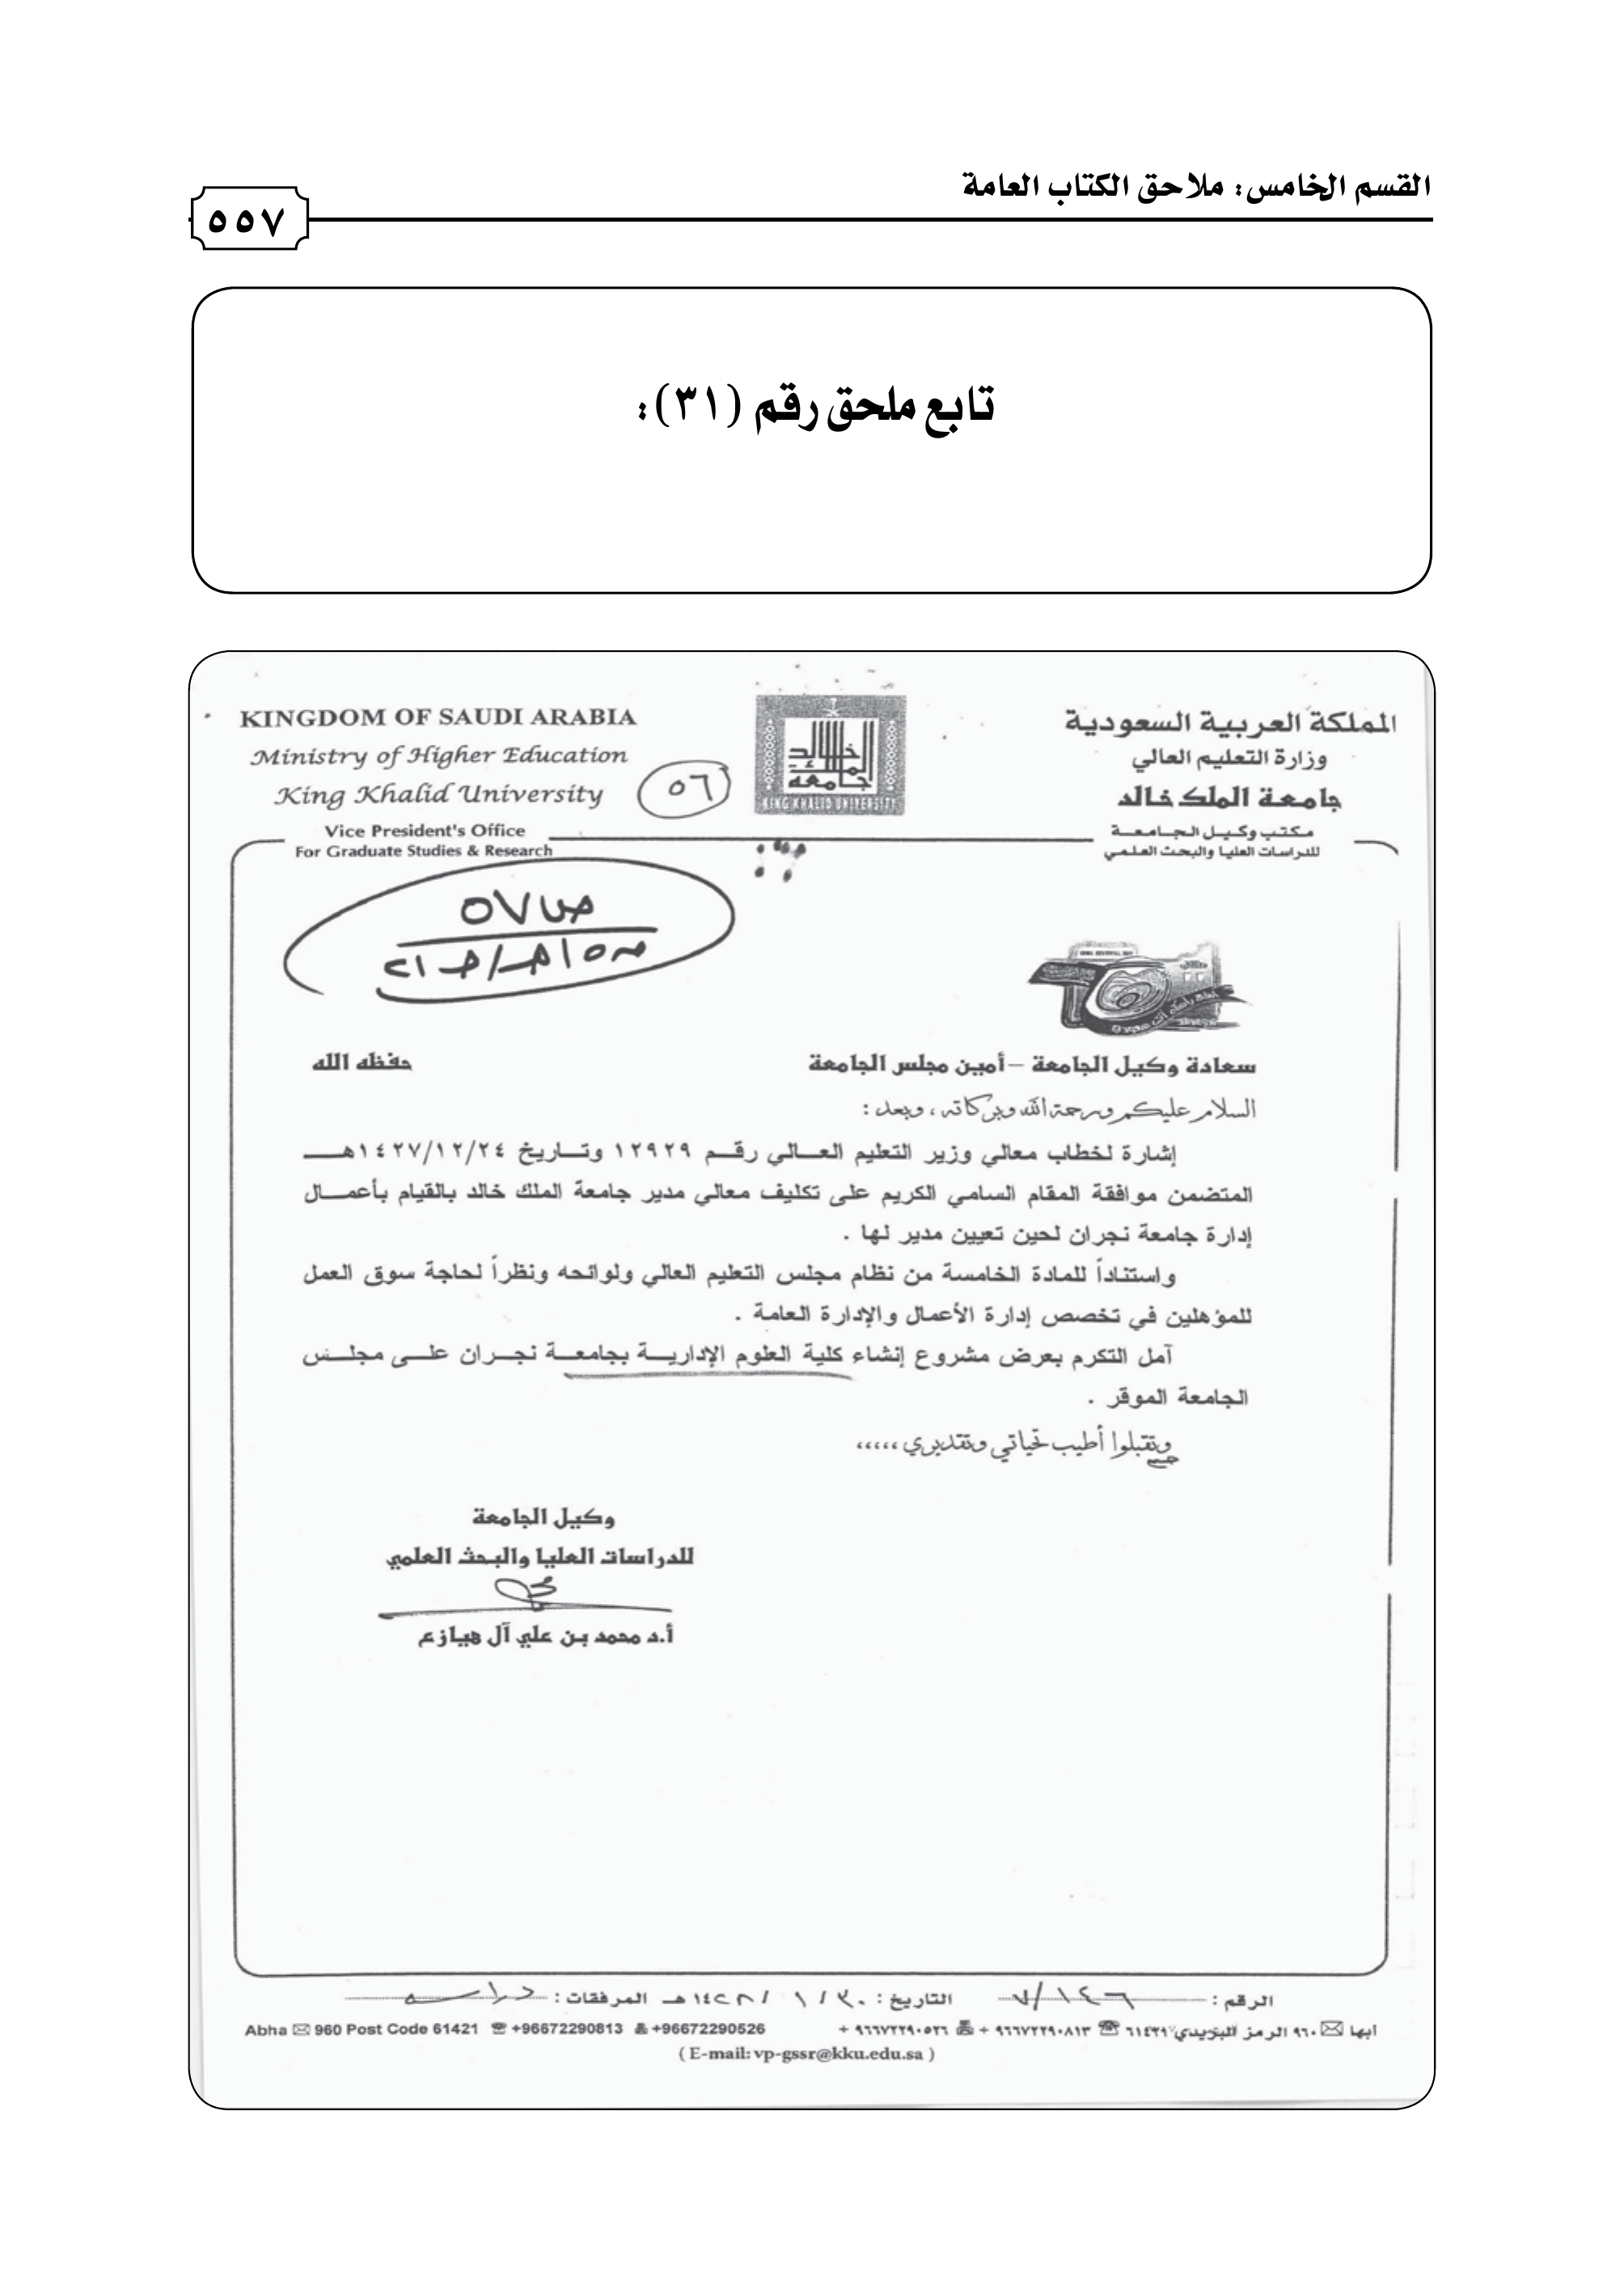 القسم الخامس: ملاحق الكتاب العامة
٥٥٧
تابع ملحق رقم (٣١):
KINGDOM OF SAUDI ARABIA
Ministry of Higher Education
King Khalid University
Vice President's Office
For Graduate Studies & Research
٥٦
جامعة الملك خالد
KING KHALID UNIVERSITY
المملكة العربية السعودية
وزارة التعليم العالي
جامعة الملك خالد
مكتب وكيل الجامعة
للدراسات العليا والبحث العلمي
ص ٥٧
سعادة وكيل الجامعة – أمين مجلس الجامعة حفظه الله
السلام عليكم ورحمة الله وبركاته ، وبعد :
إشارة لخطاب معالي وزير التعليم العالي رقم ١٢٩٢٩ وتاريخ ١٤٢٧/١٢/٢٤هـ
المتضمن موافقة المقام السامي الكريم على تكليف معالي مدير جامعة الملك خالد بالقيام بأعمال
إدارة جامعة نجران لحين تعيين مدير لها .
واستناداً للمادة الخامسة من نظام مجلس التعليم العالي ولوائحه ونظراً لحاجة سوق العمل
للمؤهلين في تخصص إدارة الأعمال والإدارة العامة .
آمل التكرم بعرض مشروع إنشاء كلية العلوم الإدارية بجامعة نجران على مجلس
الجامعة الموقر .
وتقبلوا أطيب تحياتي وتقديري ،،،،،
وكيل الجامعة
للدراسات العليا والبحث العلمي
أ.د محمد بن علي آل هيازع
الرقم : ٧/١٤٦ التاريخ : ٣٠ / ١ / ١٤٢٨ هـ المرفقات : دراسة
Abha ✉ 960 Post Code 61421 ☎ +96672290813 +96672290526
أبها ✉ ٩٦٠ الرمز البريدي ٦١٤٢١ ☎ ٩٦٦٧٢٢٩٠٨١٣ + ٩٦٦٧٢٢٩٠٥٢٦ +
( E-mail: vp-gssr@kku.edu.sa )